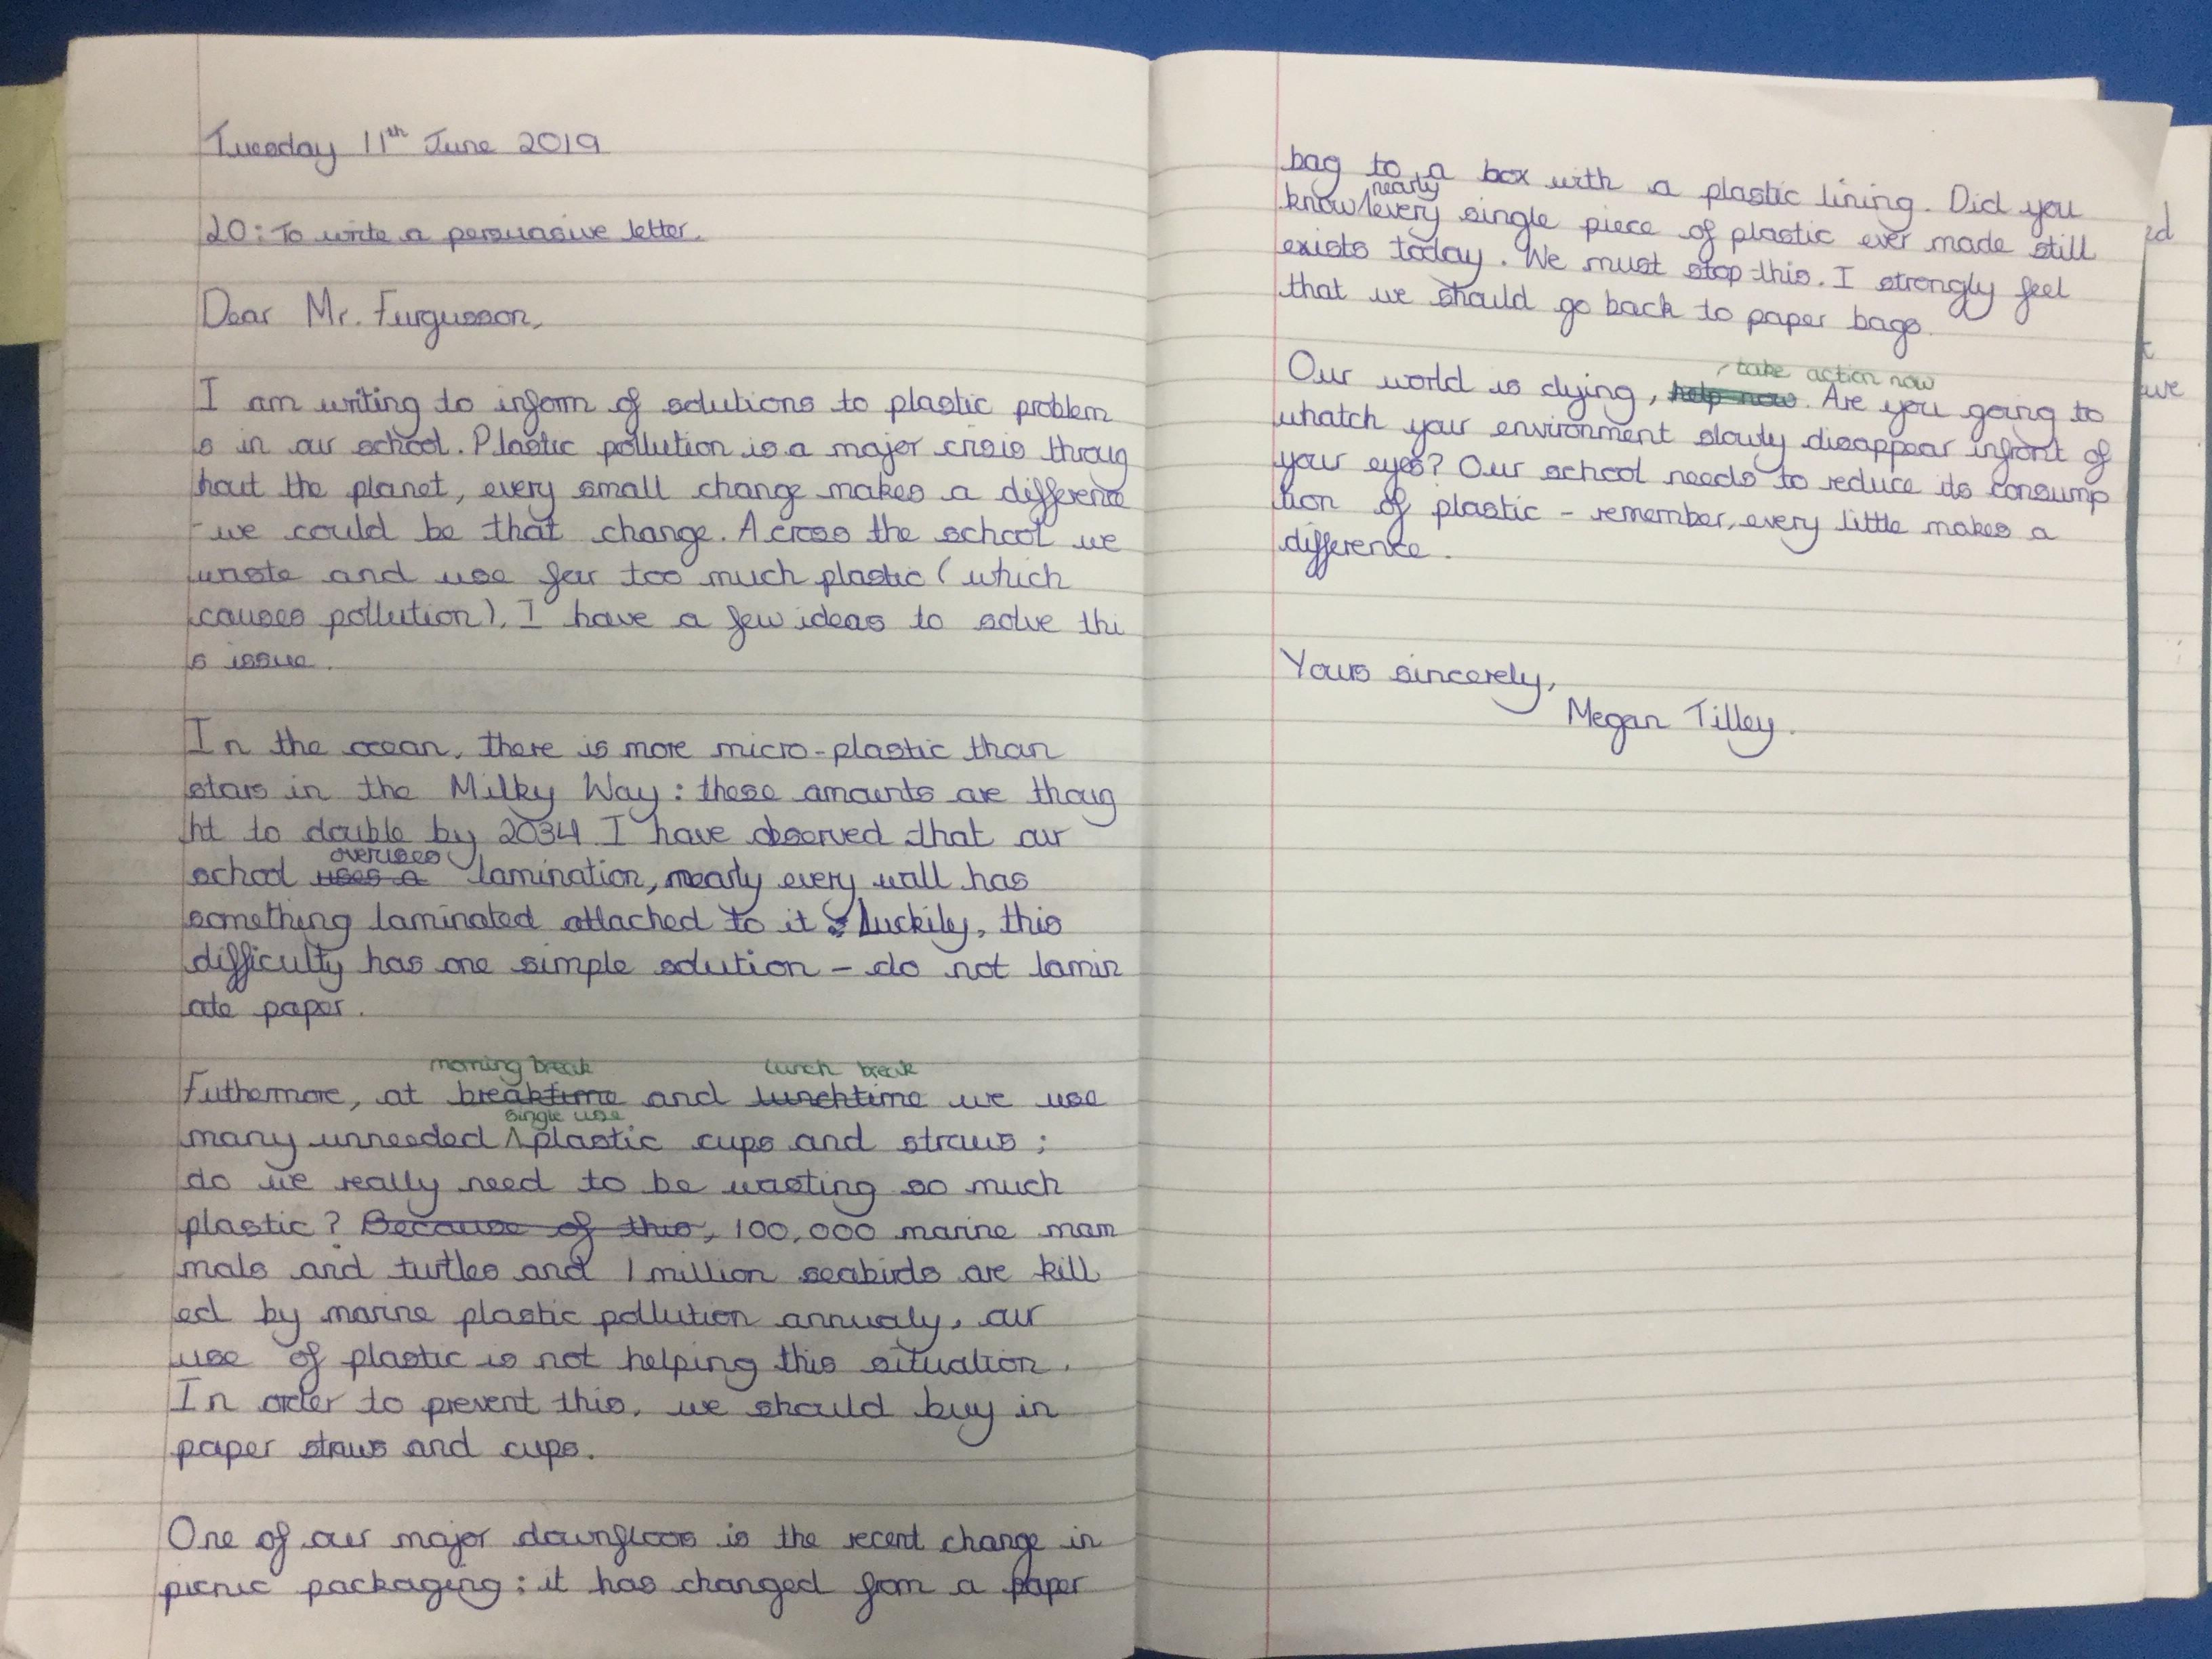 Tuesday 11th June 2019
LO: To write a persuasive letter.
Dear Mr. Furgusson,
I am writing to inform of solutions to plastic problem
s in our school. Plastic pollution is a major crisis throug
hout the planet, every small change makes a difference
- we could be that change. Across the school we
waste and use far too much plastic (which
causes pollution). I have a few ideas to solve thi
s issue.
In the ocean, there is more micro-plastic than
stars in the Milky Way: these amounts are thoug
ht to double by 2034. I have observed that our
overuses
school uses a lamination, nearly every wall has
something laminated attached to it. Luckily, this
difficulty has one simple solution - do not lamin
ate paper.
morning break lunch break
Futhermore, at breaktime and lunchtime we use
single use
many unneeded plastic cups and straws;
do we really need to be wasting so much
plastic? Because of this, 100,000 marine mam
mals and turtles and 1 million seabirds are kill
ed by marine plastic pollution annualy, our
use of plastic is not helping this situation.
In order to prevent this, we should buy in
paper straws and cups.
One of our major downfloos is the recent change in
picnic packaging: it has changed from a paper
bag to a box with a plastic lining. Did you
nearly
know every single piece of plastic ever made still
exists today. We must stop this. I strongly feel
that we should go back to paper bags.
take action now
Our world is dying, help now. Are you going to
whatch your environment slowly disappear infront of
your eyes? Our school needs to reduce its consump
tion of plastic - remember, every little makes a
difference.
Yours sincerely,
Megan Tilley.
ed
t
we